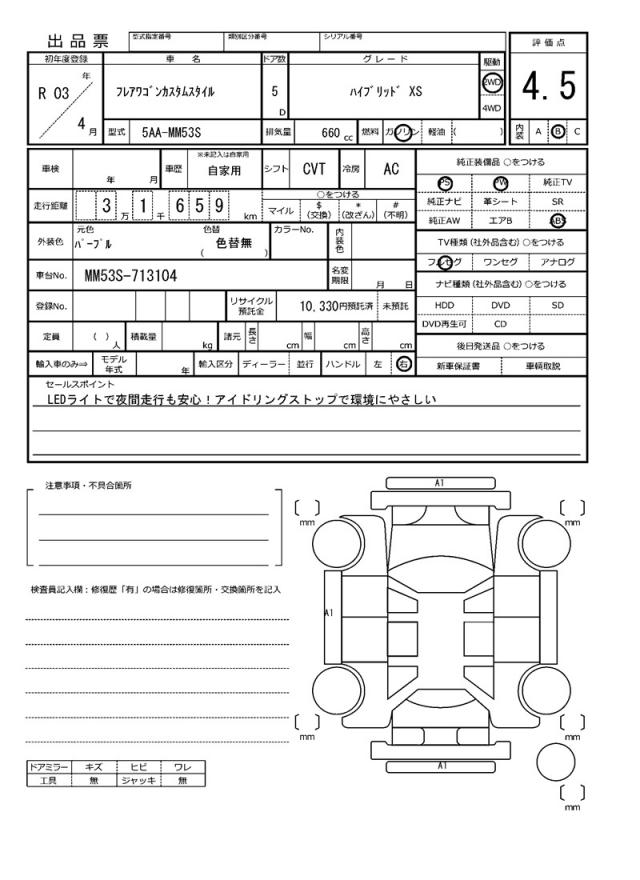 出品票
型式指定番号
類別区分番号
シリアル番号
評価点
初年度登録
車名
ドア数
グレード
駆動
R 03
年
4
月
フレアワゴンカスタムスタイル
5
D
ハイブリッド XS
2WD
4WD
4.5
型式
5AA-MM53S
排気量
660 cc
燃料
ガソリン
軽油
( )
内装
A
B
C
車検
年 月
車歴
※未記入は自家用
自家用
シフト
CVT
冷房
AC
純正装備品 ○をつける
PS
PW
純正TV
純正ナビ
革シート
SR
純正AW
エアB
ABS
走行距離
3 万 1 千 6 5 9 km
○をつける
マイル
$
(交換)
*
(改ざん)
#
(不明)
外装色
元色
パープル
色替
色替無
( )
カラーNo.
内装色
TV種類(社外品含む)○をつける
フルセグ
ワンセグ
アナログ
車台No.
MM53S-713104
名変期限
月 日
ナビ種類(社外品含む)○をつける
HDD
DVD
SD
DVD再生可
CD
登録No.
リサイクル預託金
10,330円預託済
未預託
定員
( )
人
積載量
kg
諸元
長さ
cm
幅
cm
高さ
cm
後日発送品 ○をつける
新車保証書
車輌取説
輸入車のみ⇒
モデル年式
年
輸入区分
ディーラー
並行
ハンドル
左
右
セールスポイント
LEDライトで夜間走行も安心!アイドリングストップで環境にやさしい
注意事項・不具合箇所
検査員記入欄:修復歴「有」の場合は修復箇所・交換箇所を記入
A1
mm
mm
A1
mm
mm
A1
mm
ドアミラー
キズ
ヒビ
ワレ
工具
無
ジャッキ
無